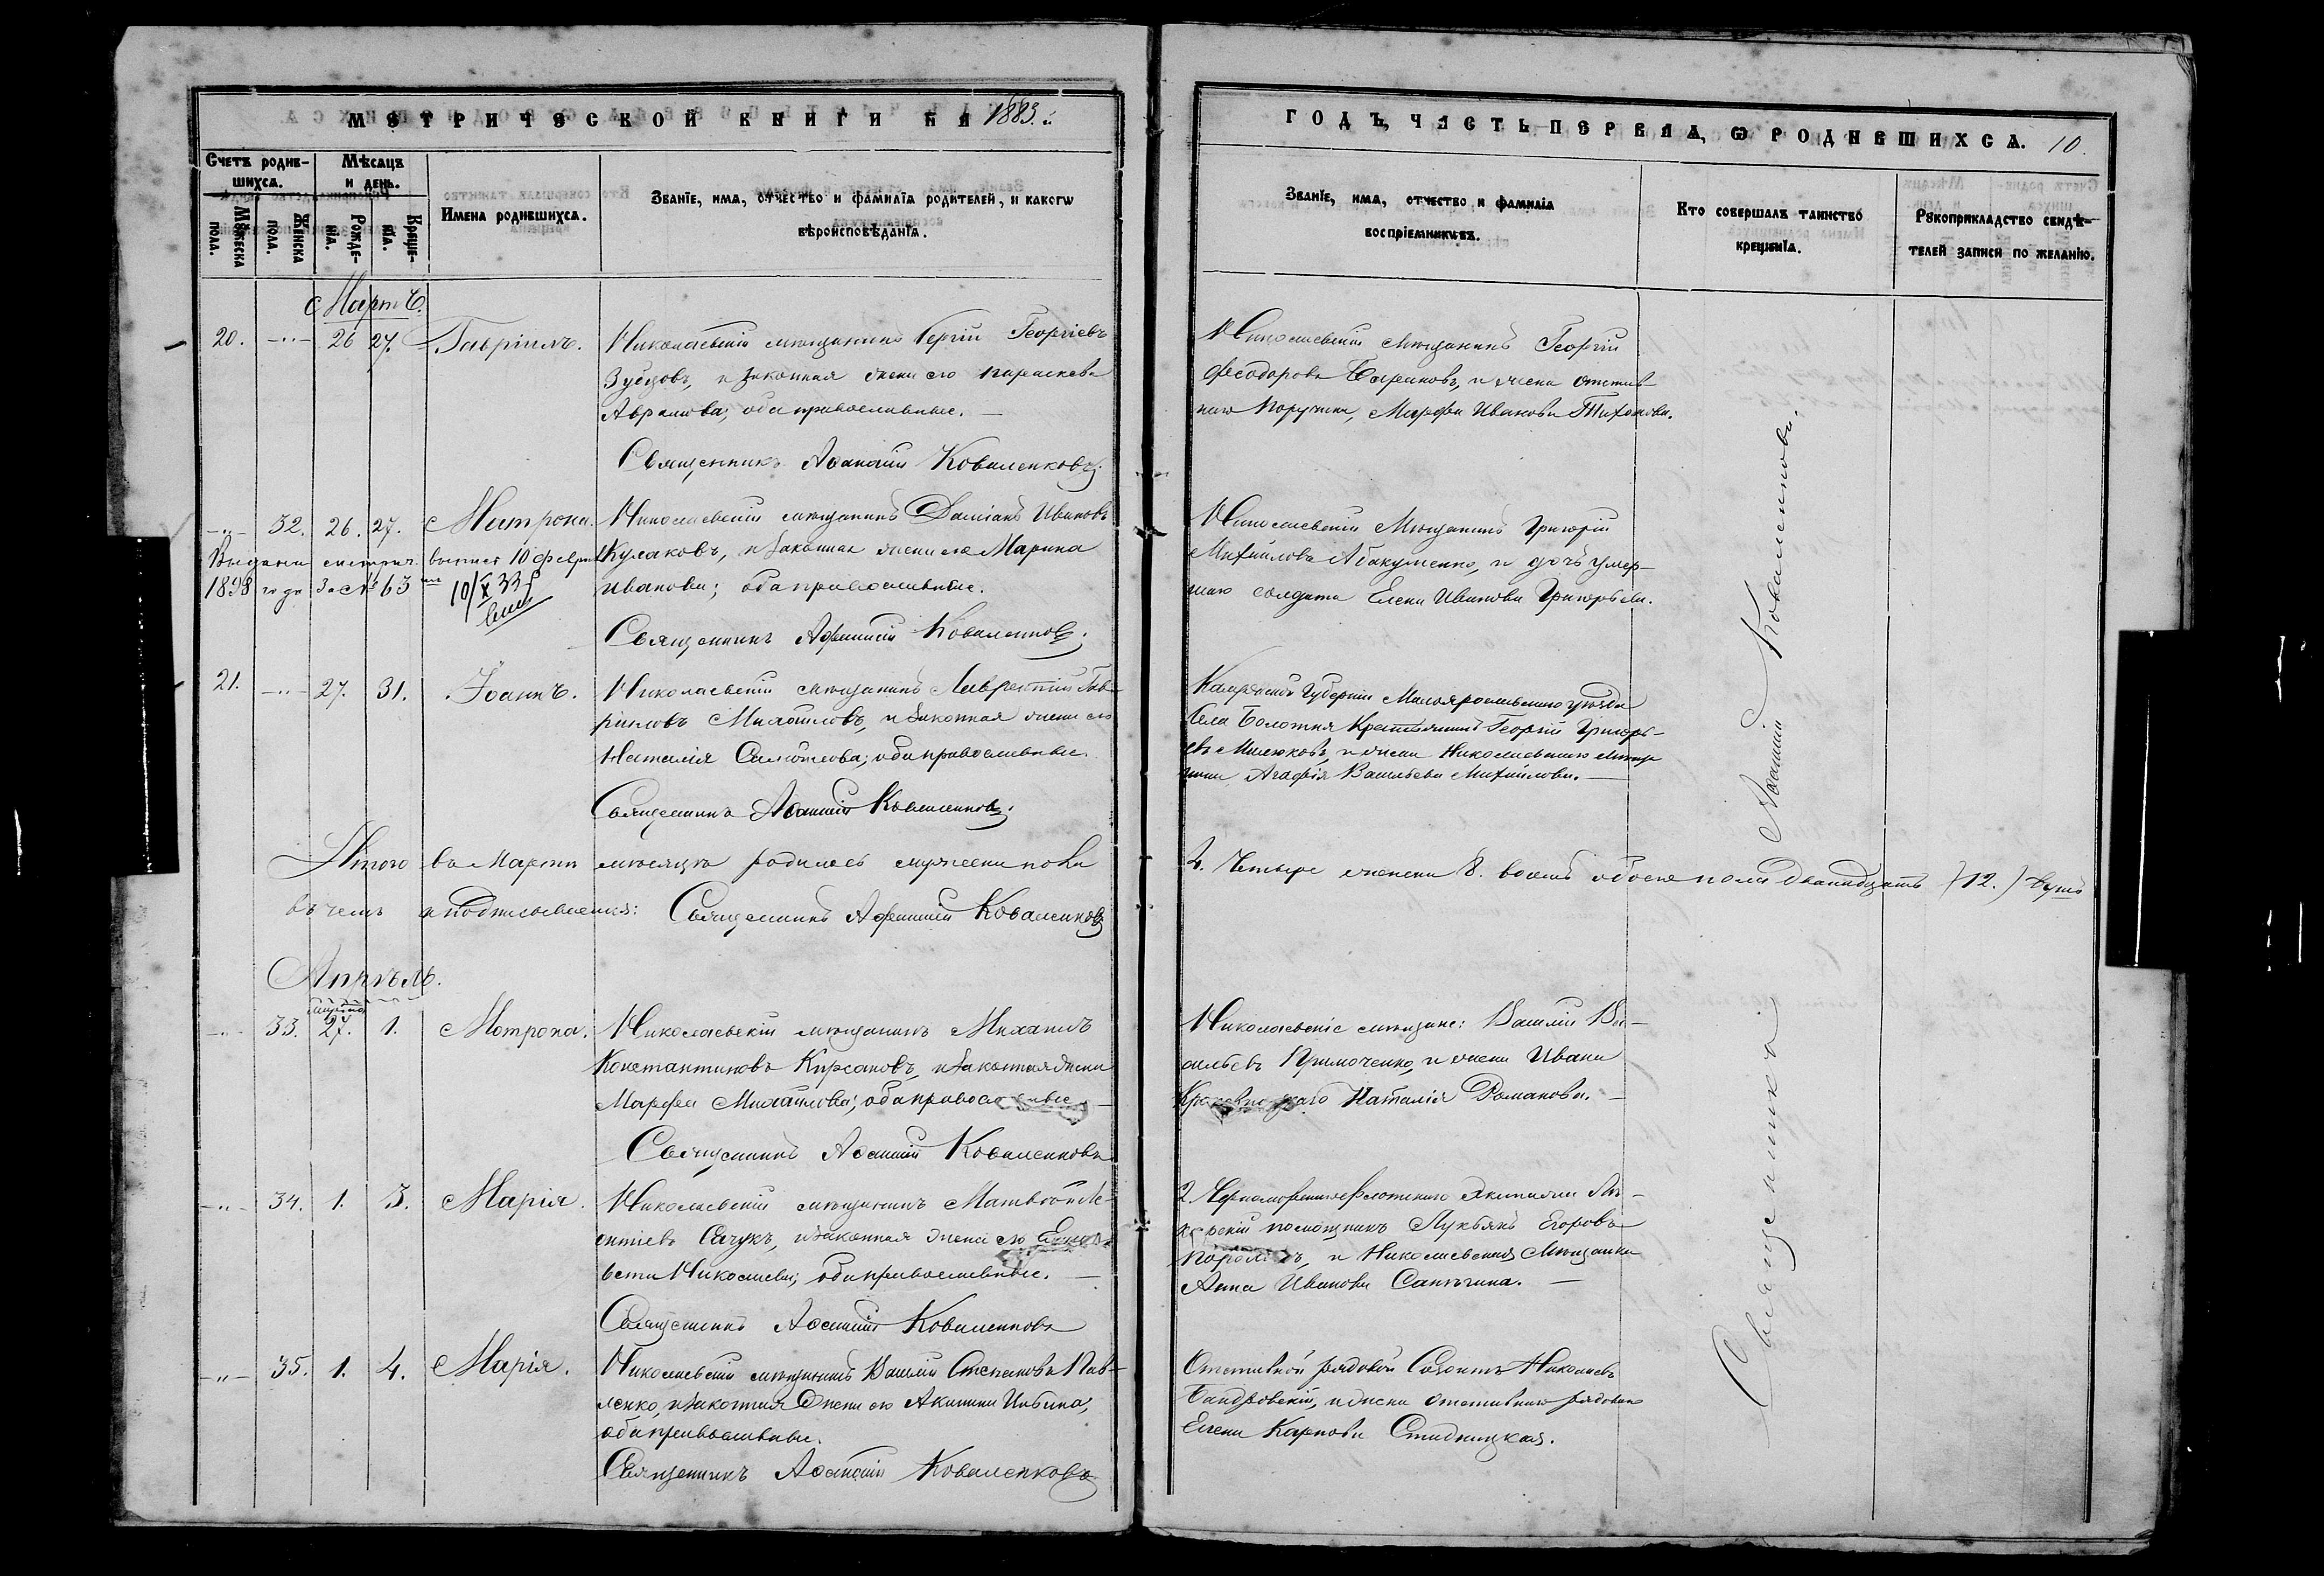 МЕТРИЧЕСКОЙ КНИГИ НА 1883.
Счетъ родив-
шихся.
Мѣсяцъ
и день.
Имена родившихся.
Званїе, имя, отчество и фамилїя родителей, и какогѡ
вѣроисповѣданїя.
Мꙋжеска
пола.
Женска
пола.
Рожде-
нїя.
Креще-
нїя.
Мартъ.
20. -"- 26 27. Гавріилъ. Николаевскій мѣщанинъ Георгіевъ
Зубцовъ, и законная жена его Параскева
Аврамова; оба православные.
Священникъ Аѳанасій Коваленковъ.
-"- 32. 26. 27. Матрона. Николаевскій мѣщанинъ Даміанъ Ивановъ
Кулаковъ, и законная жена его Марина
Иванова; оба православные.
Выдана метрич. 10 февр
1898 года за № 63
10/X 33
Священникъ Аѳанасій Коваленковъ.
21. -"- 27. 31. Іоаннъ. Николаевскій мѣщанинъ Лаврентій Гав-
ріиловъ Михайловъ, и законная жена его
Наталія Самойлова; оба православные.
Священникъ Аѳанасій Коваленковъ.
Итого въ Мартѣ мѣсяцѣ родилось мужеска пола
въ чемъ и подписываемся: Священникъ Аѳанасій Коваленковъ
Апрѣль.
33. 27. 1. Матрона. Николаевскій мѣщанинъ Михаилъ
Константиновъ Кирсановъ, и законная жена
Марфа Михайлова; оба православные
Священникъ Аѳанасій Коваленковъ
-"- 34. 1. 3. Марія. Николаевскій мѣщанинъ Матвѣй Ле-
онтіевъ и законная жена его Елиса-
вета Николаева; оба православные.
Священникъ Аѳанасій Коваленковъ
-"- 35. 1. 4. Марія. Николаевскій мѣщанинъ Василій Степановъ Пав-
ленко, и законная жена его Акилина
оба православные.
Священникъ Аѳанасій Коваленковъ
ГОДЪ, ЧАСТЬ ПЕРВАЯ, Ѡ РОДИВШИХСЯ. 10.
Званїе, имя, отчество и фамилїя
воспрїемникѡвъ.
Кто совершалъ таинство
крещенїя.
Рꙋкоприкладство свидѣ-
телей записи по желанїю.
Николаевскій мѣщанинъ Георгій
Феодоровъ Бариновъ, и жена отстав-
наго Марфа Иванова Тихонова.
Николаевскій Мѣщанинъ Григорій
Михайловъ Абакуменко, и дочь умер-
шаго солдата Елена Иванова Григорьева.
Калужской Губерніи Малоярославецкаго уѣзда
Села Болотня Крестьянинъ Георгій Григорь-
евъ Милюковъ, и жена Николаевскаго мѣща-
нина Агафія Васильева Михайлова.
4. Четыре женска 8. восемь обоего пола двѣнадцать (12.) душъ
Николаевскіе мѣщане: Василій Ва-
сильевъ Примоченко, и жена Ивана
Наталія Романова.
2 Черноморскаго Флотскаго Экипажа
помощникъ Лукьянъ Егоровъ
и Николаевская Мѣщанка
Анна Иванова
Отставной рядовой Николаевъ
Бандровскій, и жена отставнаго рядоваго
Елена Карпова Стадницкая.
Священникъ Аѳанасій Коваленковъ.